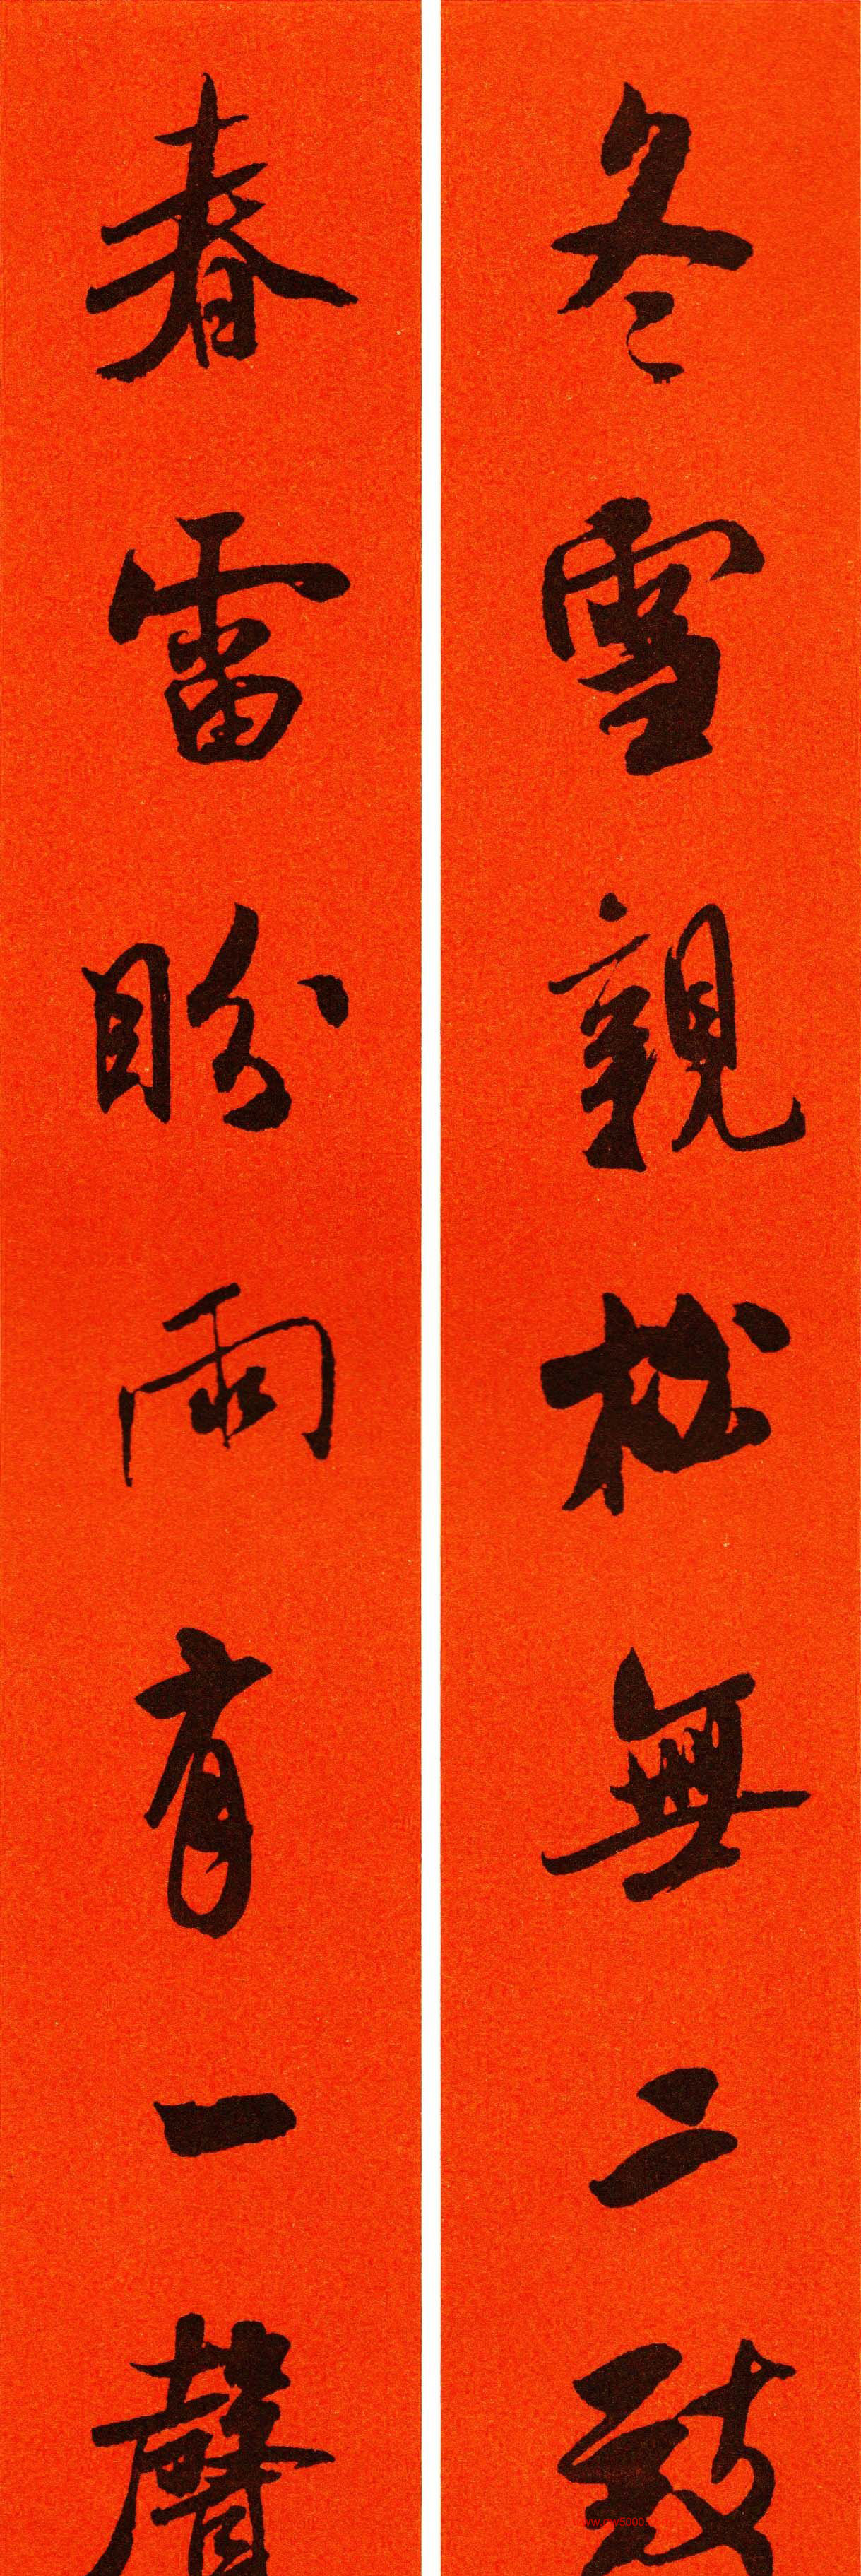 冬雪親松無二致
春雷盼雨有一聲